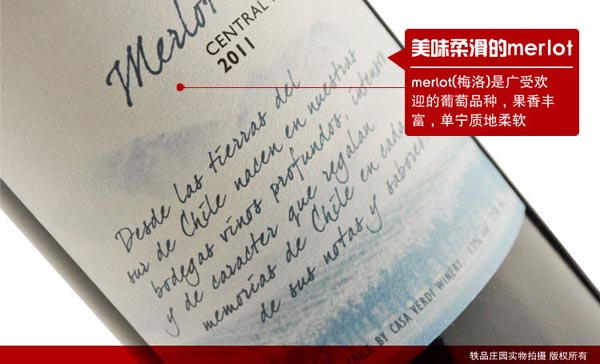 Merlot
CENTRAL
2011
美味柔滑的merlot
merlot(梅洛)是广受欢
迎的葡萄品种，果香丰
富，单宁质地柔软
Desde las tierras del
sur de Chile nacen en nuestras
bodegas vinos profundos, intensos
y de caracter que regalan
memorias de Chile en cada
de sus notas y sabores.
CHILE BY CASA VERDI WINERY
轶品庄园实物拍摄 版权所有